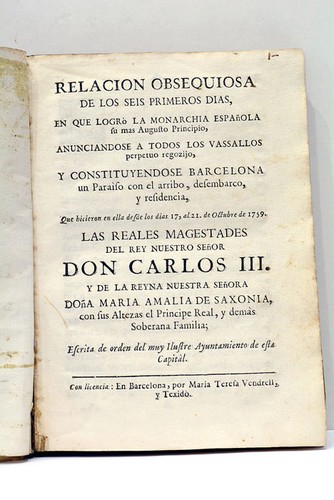 RELACION OBSEQUIOSA
DE LOS SEIS PRIMEROS DIAS,
EN QUE LOGRò LA MONARCHIA ESPAñOLA
su mas Augusto Principio,
ANUNCIANDOSE A TODOS LOS VASSALLOS
perpetuo regozijo,
Y CONSTITUYENDOSE BARCELONA
un Paraiso con el arribo, desembarco,
y residencia,
Que hicieron en ella desde los dias 17, al 21. de Octubre de 1759.
LAS REALES MAGESTADES
DEL REY NUESTRO SEñOR
DON CARLOS III.
Y DE LA REYNA NUESTRA SEñORA
DOñA MARIA AMALIA DE SAXONIA,
con sus Altezas el Principe Real, y demás
Soberana Familia;
Escrita de orden del muy Ilustre Ayuntamiento de esta
Capitàl.
Con licencia: En Barcelona, por Maria Teresa Vendrell,
y Texidò.